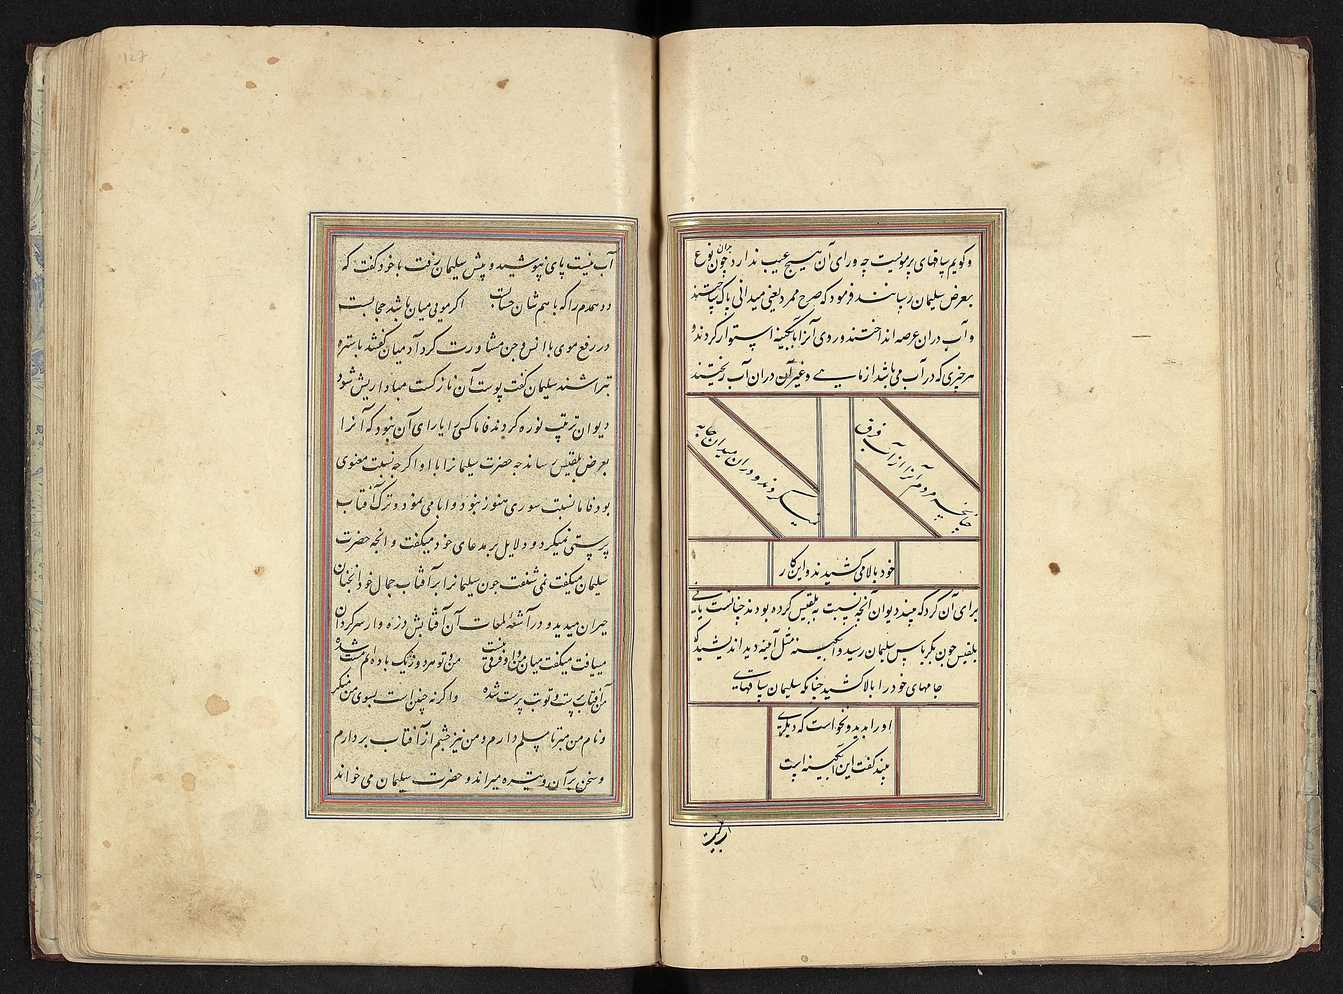 و گویم ساقهای پر مویست چه ورای آن هیچ عیب ندارد چون نوع
بعرض سلیمان رسانند فرمود که صرح ممرد یعنی میدانی پاک ساختند
و آب دران عرصه انداختند و روی آنرا بآبگینه استوار کردند و
هر چیزی که در آب می باشد از ماهی و غیر آن دران آب ریختند
چنانچه مردم آنرا از آب فرق
نمیکردند و دران میدان جامه
خود بالا می کشیدند و این کار
برای آن کرد که بیند دیوان آنچه نسبت به بلقیس کرده بودند چنانست یا نی
بلقیس چون بکریاس سلیمان رسید و آبگینه مثل آینه دید اندیشید که
جامهای خود را بالا کشید چنانکه سلیمان ساقهای
او را بدید و نخواست که دیگری
بیند گفت این آبگینه است
آب نیست پای بپوشید و پیش سلیمان رفت با خود گفت که
دو همدم را که با هم شان حسابست اگر مویی میان باشد حجابست
در رفع موی با انس و جن مشاورت کرد آدمیان گفتند باستره
تراشند سلیمان گفت پوست آن نازکست مبادا ریش شود
دیوان ترتیب نوره کردند فاما کسی را یارای آن نبود که آنرا
بعرض بلقیس رساند چه حضرت سلیمانرا با او اگر چه نسبت معنوی
بود فاما نسبت سوری هنوز نبود و ابا می نمود و ترک آفتاب
پرستی نمیکرد و دلایل بر مدعای خود میگفت و آنچه حضرت
سلیمان میگفت نمی شنفت چون سلیمانرا بر آفتاب جمال خود آنچنان
حیران میدید و در آشعهٔ لمعات آن آفتابش ذره وار سرگردان
مییافت میگفت میان من و تو فرقی نیست من و تو هر دو ز یک باده ایم مست شده
من آفتاب پرست و تو بت پرست شده و اگر نه چنین است بسوی من منگر
و نام من مبر تا مسلم دارم و من نیز چشم از آفتاب بردارم
و سخن بر آن وتیره میراند و حضرت سلیمان می خواند